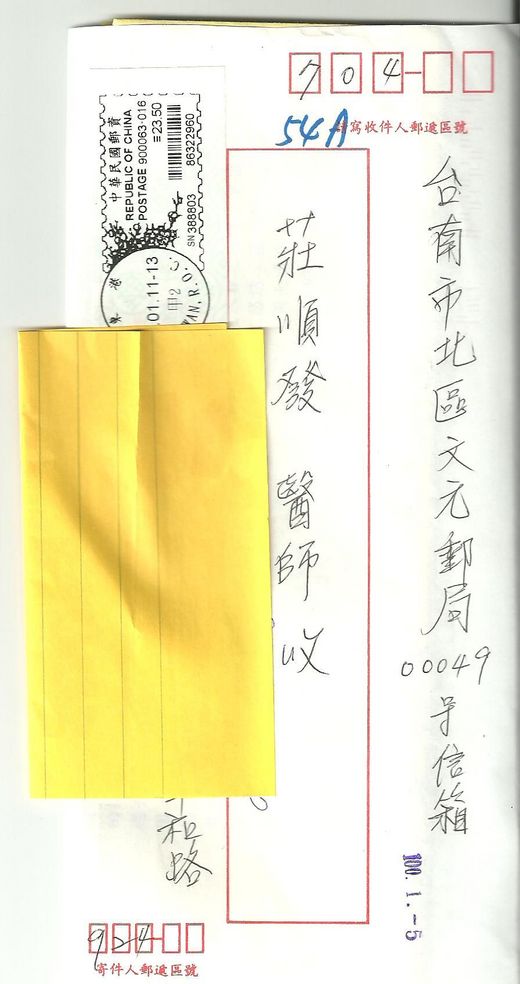 704
請寫收件人郵遞區號
54A
台南市北區文元郵局
00049
号信箱
100.1.-5
莊順發 醫師 收
中華民國郵資
REPUBLIC OF CHINA
POSTAGE 900063-016
≡23.50
86322960
SN 388803
01.11-13
甲2
WAN, R.O.C.
和路
924
寄件人郵遞區號